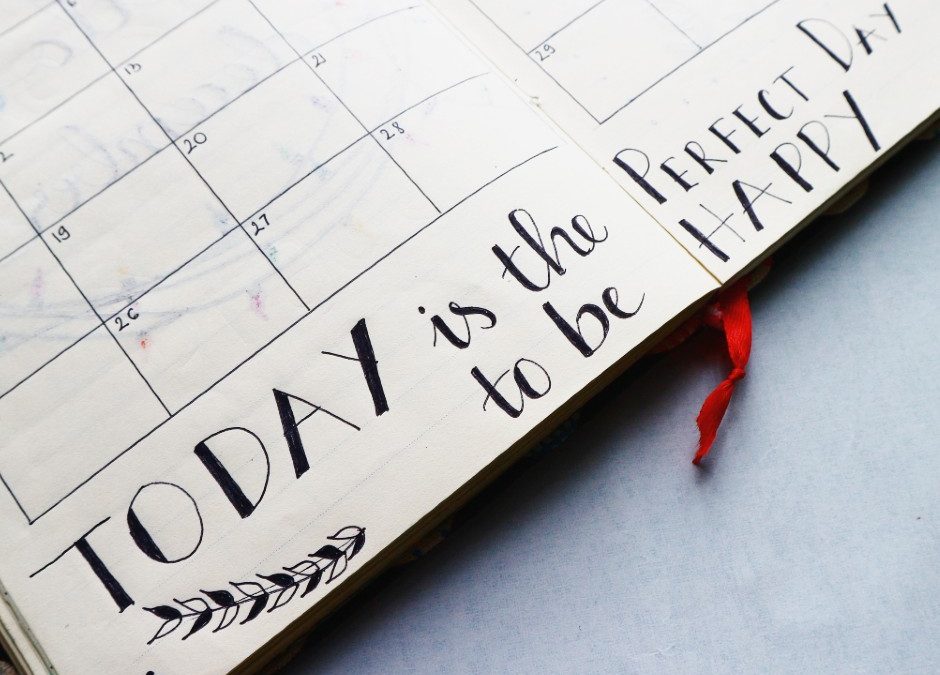 6
13
21
29
20
28
19
27
26
TODAY is the PERFECT DAY
to be HAPPY